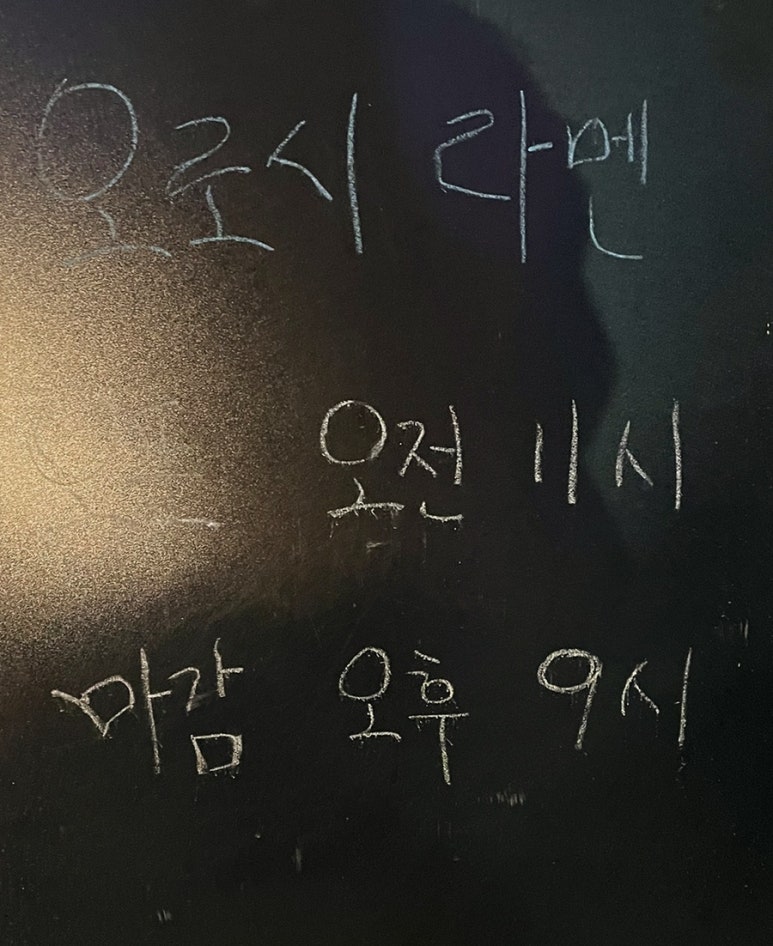 오로시 라멘
오전 11시
마감 오후 9시